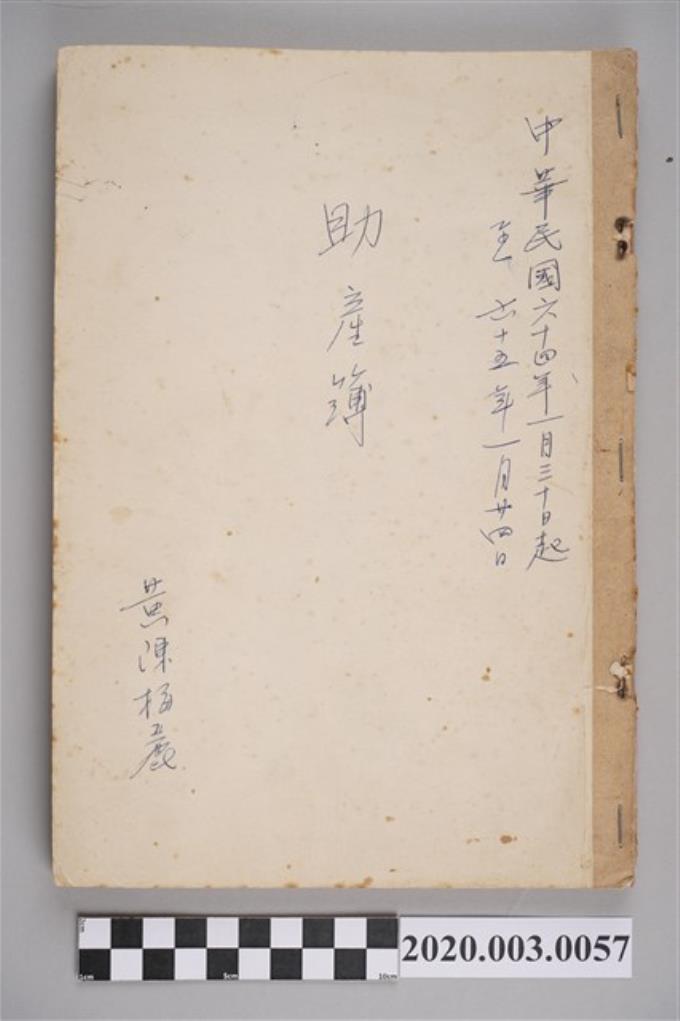 中華民國六十四年一月三十日起
至六十五年一月廿四日
助產簿
黃陳梅麗
2020.003.0057
1cm 5cm 10cm